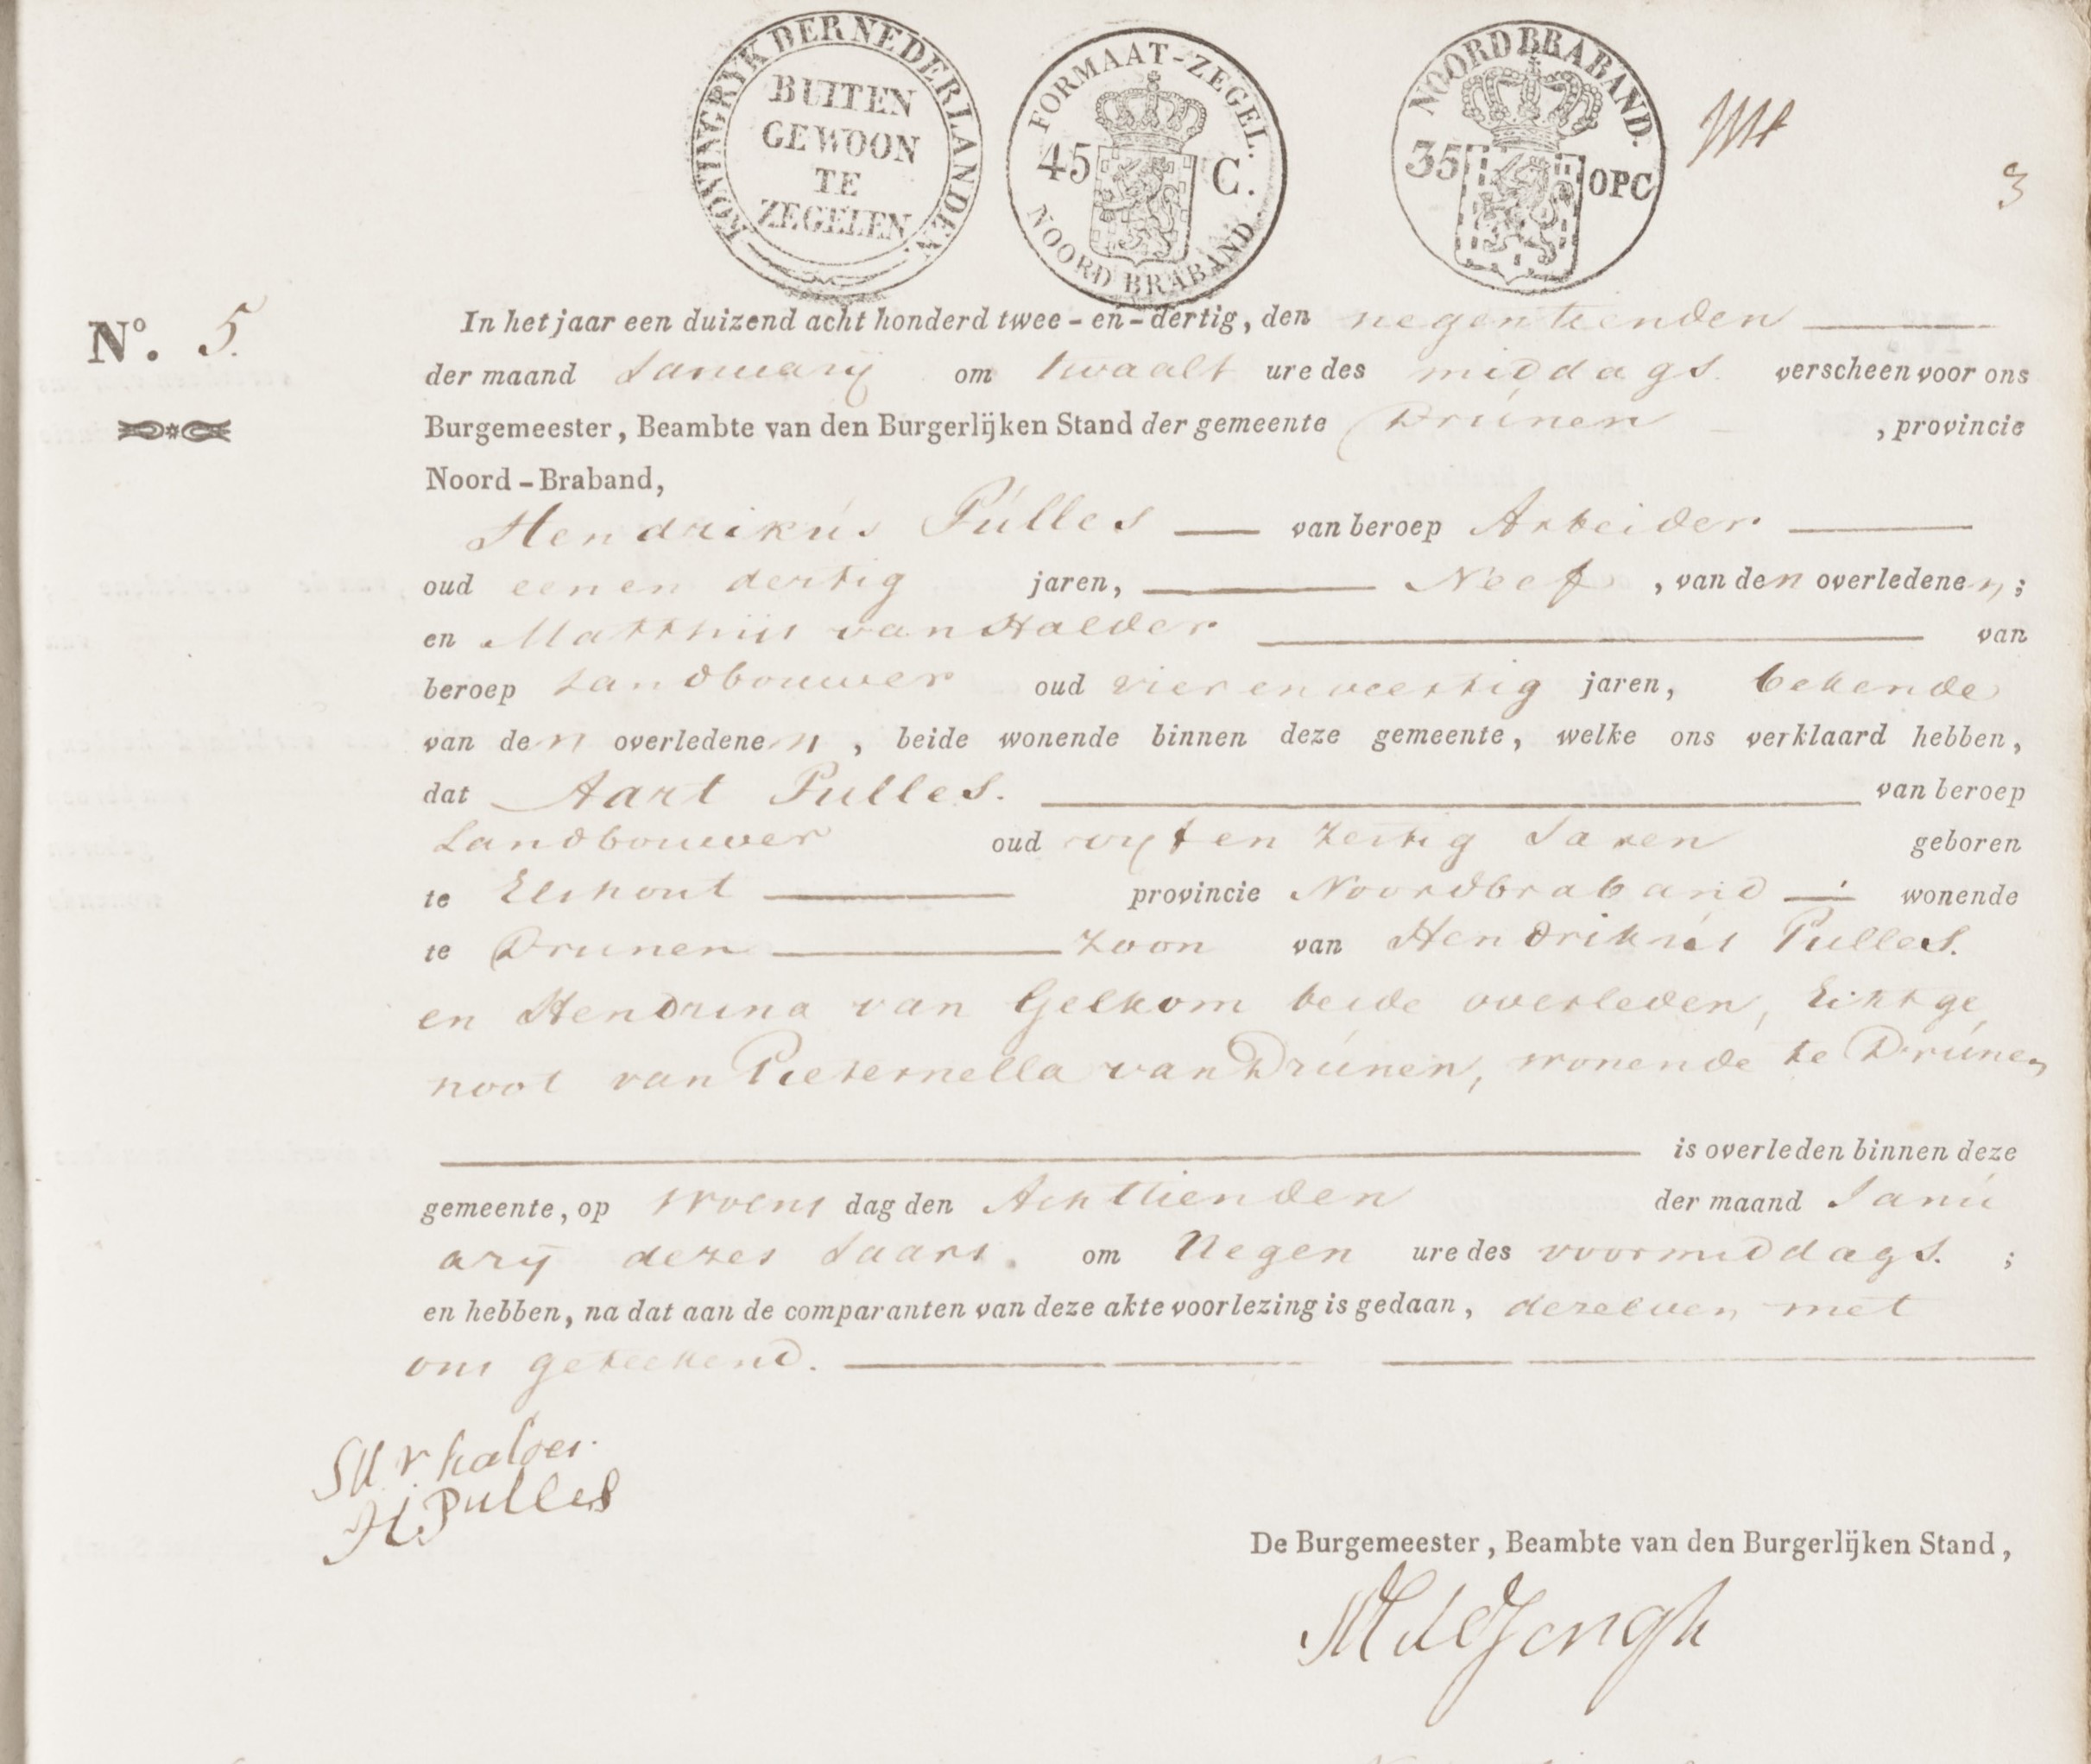 KONINGRYK DER NEDERLANDEN
BUITEN
GEWOON
TE
ZEGELEN
FORMAAT-ZEGEL.
45 C.
NOORD BRABAND
NOORD BRABAND.
35 OPC
3
N°. 5.
In het jaar een duizend acht honderd twee-en-dertig, den negentienden
der maand Januarij om twaalf ure des middags verscheen voor ons
Burgemeester, Beambte van den Burgerlijken Stand der gemeente Drúnen, provincie
Noord-Braband,
Hendrikús Púlles van beroep Arbeider
oud eenen dertig jaren, Neef, van den overledenen;
en Matthijs van Halder van
beroep Landbouwer oud vier en veertig jaren, bekende
van den overledenen, beide wonende binnen deze gemeente, welke ons verklaard hebben,
dat Aart Pulles. van beroep
Landbouwer oud vyf en zestig Jaren geboren
te Elshout provincie Noordbraband wonende
te Drunen Zoon van Hendrikús Pulles.
en Hendrina van Gelkom beide overleden, Echtge
noot van Pieternella van Drúnen, wonende te Drúnen
is overleden binnen deze
gemeente, op woens dag den Achttienden der maand Janú
arij dezes Jaars. om Negen ure des voormiddags. ;
en hebben, na dat aan de comparanten van deze akte voorlezing is gedaan, dezelven met
ons geteekend.
v halder
H Pulles
De Burgemeester, Beambte van den Burgerlijken Stand,